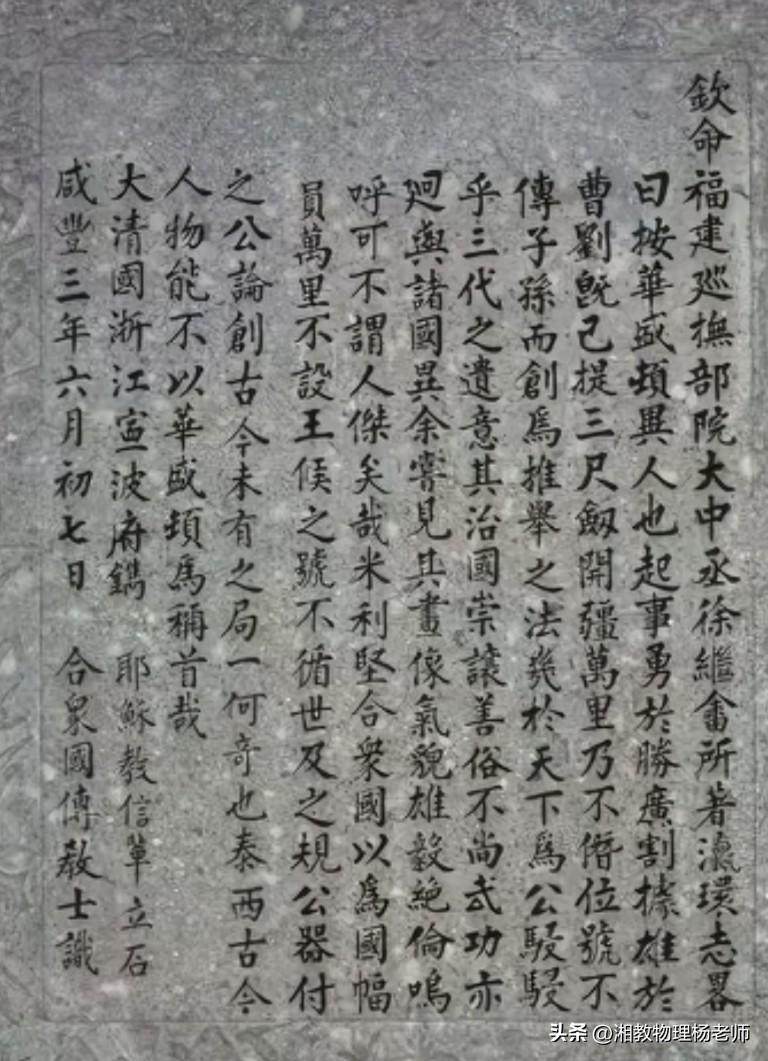 欽命福建巡撫部院大中丞徐繼畬所著瀛環志畧
曰按華盛頓異人也起事勇於勝廣割據雄於
曹劉旣已提三尺劔開疆萬里乃不僭位號不
傳子孫而創爲推舉之法幾於天下爲公駸駸
乎三代之遺意其治國崇讓善俗不尚武功亦
迥與諸國異余嘗見其畫像氣貌雄毅絕倫嗚
呼可不謂人傑矣哉米利堅合衆國以爲國幅
員萬里不設王侯之號不循世及之規公器付
之公論創古今未有之局一何奇也泰西古今
人物能不以華盛頓爲稱首哉
大清國浙江寧波府鐫 耶穌教信輩立石
咸豐三年六月初七日 合衆國傳教士識
头条 @湘教物理杨老师